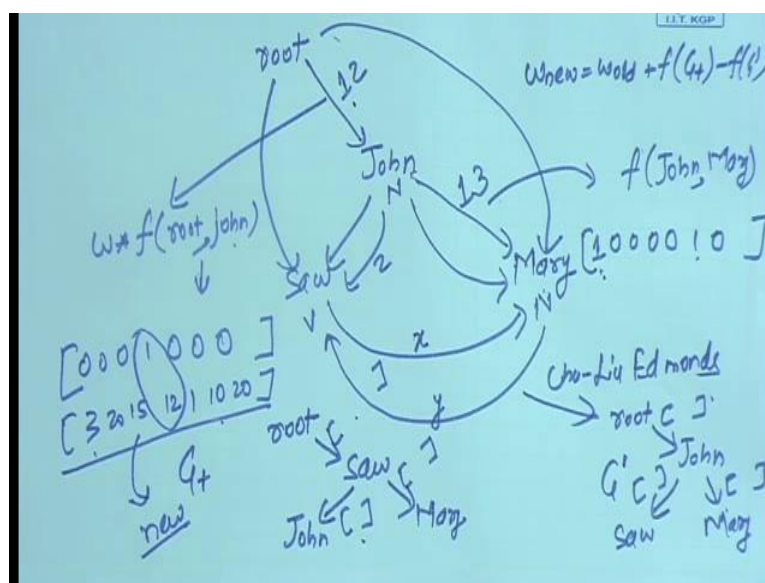 I.I.T. KGP
root
Wnew = Wold + f(G+) - f(G')
12
John
N
13
f(John, Mary)
w * f(root, John)
2
Saw
V
Mary
N
[1 0 0 0 0 1 0 ]
x
y
[0 0 0 1 0 0 0 ]
[3 20 15 12 1 10 20]
G+
new
root [ ]
Saw [ ]
John [ ]
Mary
Chu-Liu Edmonds
root [ ]
John
G' [ ] [ ]
Saw
Mary